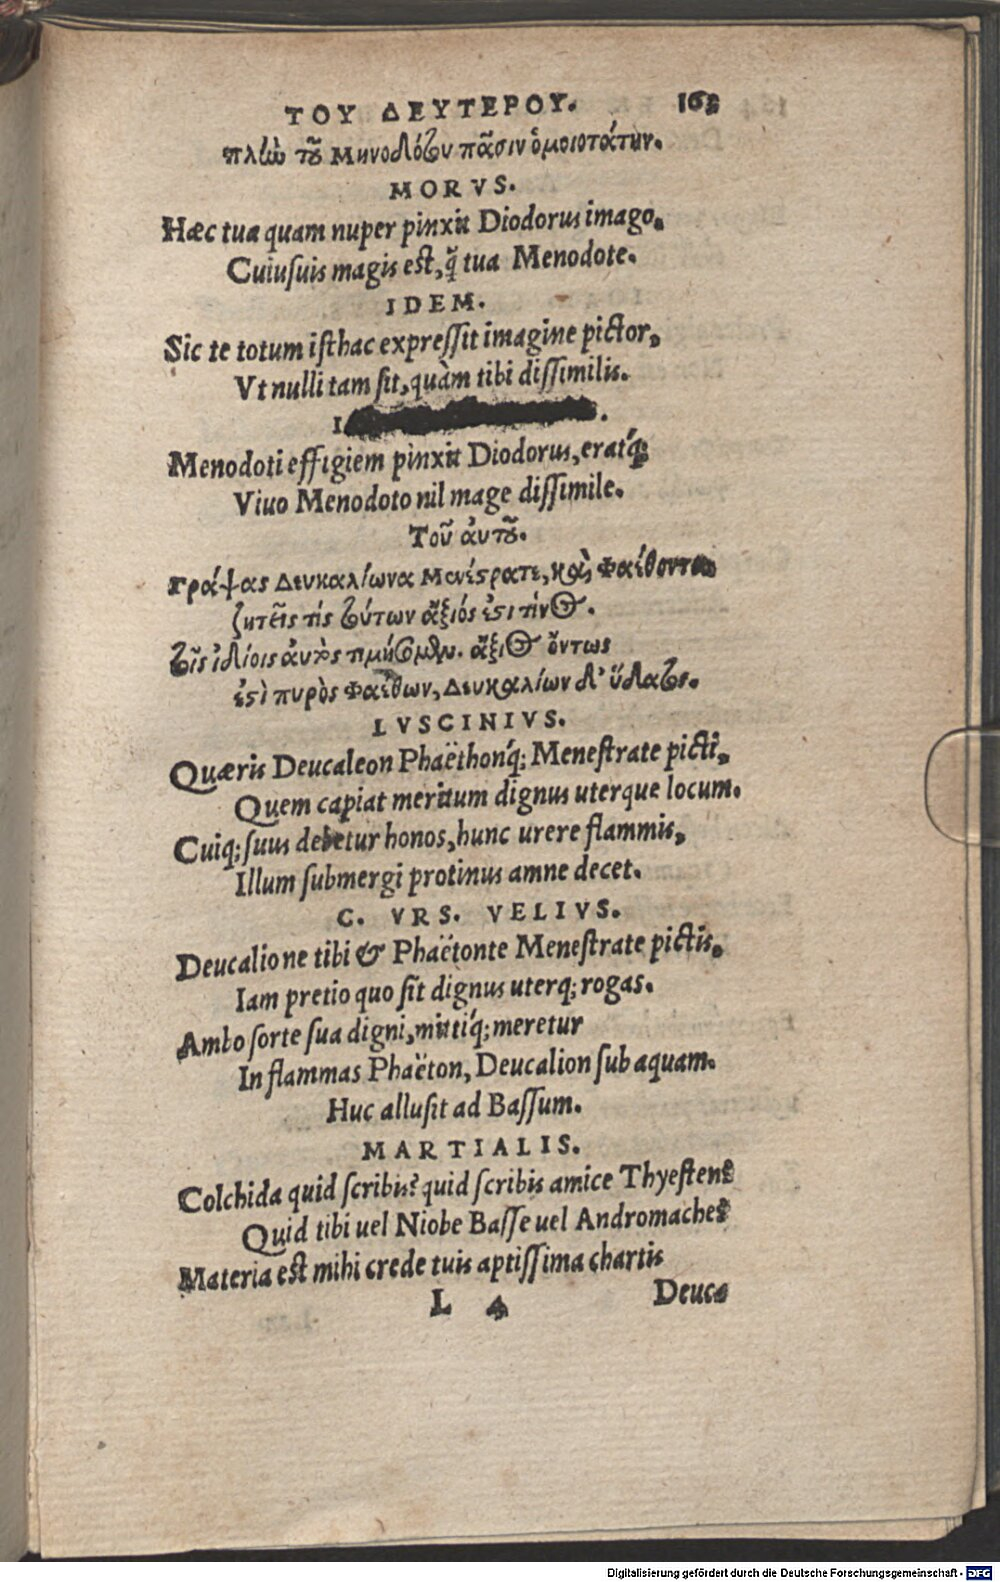 ΤΟΥ ΔΕΥΤΕΡΟΥ. 163
πλὴν τοῦ Μηνοδότου πᾶσιν ὁμοιοτάτην.
MORVS.
Hæc tua quam nuper pinxit Diodorus imago,
Cuiusuis magis est, q̃ tua Menodote.
IDEM.
Sic te totum isthac expressit imagine pictor,
Vt nulli tam sit, quàm tibi dissimilis.
I .
Menodoti effigiem pinxit Diodorus, eratq́;
Viuo Menodoto nil mage dissimile.
Τοῦ ἀυτοῦ.
Γράψας Δευκαλίωνα Μενέστρατε, καὶ Φαέθοντα
ζητεῖς τίς τούτων ἄξιός ἐστι τίνος.
τοῖς ἰδίοις ἀυτοὺς τιμήσομεν. ἄξιος ὄντως
ἐστὶ πυρὸς Φαέθων, Δευκαλίων δ' ὕδατος.
LVSCINIVS.
Quæris Deucaleon Phaëthonq́; Menestrate picti,
Quem capiat meritum dignus uterque locum.
Cuiq; suus debetur honos, hunc urere flammis,
Illum submergi protinus amne decet.
C. VRS. VELIVS.
Deucalione tibi & Phaëtonte Menestrate pictis,
Iam pretio quo sit dignus uterq; rogas.
Ambo sorte sua digni, mittiq́; meretur
In flammas Phaëton, Deucalion sub aquam.
Huc allusit ad Bassum.
MARTIALIS.
Colchida quid scribis? quid scribis amice Thyesten?
Quid tibi uel Niobe Basse uel Andromache?
Materia est mihi crede tuis aptissima chartis
L 4 Deuca
Digitalisierung gefördert durch die Deutsche Forschungsgemeinschaft - DFG